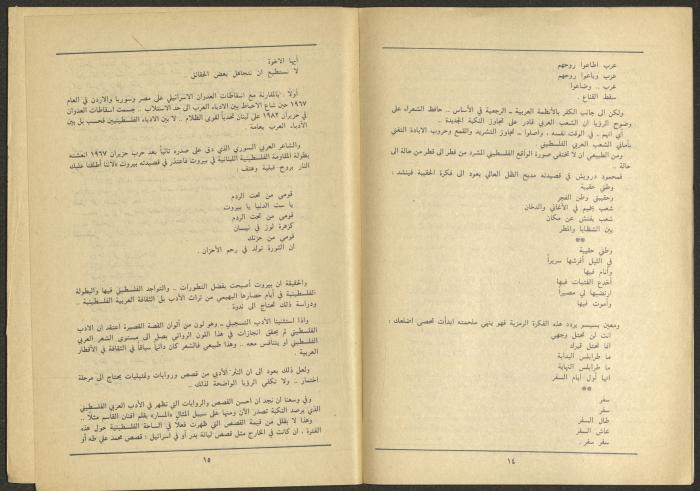 عرب اطاعوا روحهم
عرب وباعوا روحهم
عرب .. وضاعوا
سقط القناع .
ولكن الى جانب الكفر بالأنظمة العربية ــ الرجعية في الأساس .. حافظ الشعراء على
وضوح الرؤيا ان الشعب العربي قادر على تجاوز النكبة الجديدة ..
أي انهم ، في الوقت نفسه ، واصلوا ــ تجاوز التشريد والقمع وحروب الابادة التغني
بأماني الشعب العربي الفلسطيني .
ومن الطبيعي ان لا تختفي صورة الواقع الفلسطيني المشرد من قطر الى قطر من حالة الى
حالة ..
فمحمود درويش في قصيدته مديح الظل العالي يعود الى فكرة الحقيبة فينشد :
وطني حقيبة
وحقيبتي وطن الغجر
شعب يخيم في الأغاني والدخان
شعب يفتش عن مكان
بين الشظايا والمطر
**
وطني حقيبة
في الليل أفرشها سريراً
وأنام فيها
أخدع الفتيات فيها
ارتضيها لي مصيراً
وأموت فيها
ومعين بسيسو يردد هذه الفكرة الرمزية فهو ينهي ملحمته ابدأت تحصي اضلعك :
انت لن تحتل وجهي
انما تحتل قبرك
ما طرابلس البداية
ما طرابلس النهاية
انها أول ايام السفر
**
سفر
سفر
طال السفر
عاش السفر
سفر سفر .
١٤
أيها الاخوة
لا نستطيع ان نتجاهل بعض الحقائق ..
أولا : بالمقارنة مع اسقاطات العدوان الاسرائيلي على مصر وسوريا والاردن في العام
١٩٦٧ حين شاع الاحباط بين الادباء العرب الى حد الاستلاب .. جسمت اسقاطات العدوان
في حزيران ١٩٨٢ على لبنان تحدياً لقوى الظلام .. لا بين الادباء الفلسطينيين فحسب بل بين
الأدباء العرب بعامة .
والشاعر العربي السوري الذي دق على صدره تائباً بعد حرب حزيران ١٩٦٧ انعشته
بطولة المقاومة الفلسطينية اللبنانية في بيروت فاعتذر في قصيدته بيروت لأننا أطلقنا عليك
النار بروح قبلية وهتف :
قومي من تحت الردم
يا ست الدنيا يا بيروت
قومي من تحت الردم
كزهرة لوز في نيسان
قومي من حزنك
ان الثورة تولد في رحم الأحزان .
والحقيقة ان بيروت أصبحت بفضل التطورات .. والتواجد الفلسطيني فيها والبطولة
الفلسطينية في أيام حصارها البهيمي من تراث الأدب بل الثقافة العربية الفلسطينية ..
ودراسة ذلك تحتاج الى ندوة
واذا استثنينا الأدب التسجيلي ــ وهو لون من ألوان القصة القصيرة اعتقد ان الادب
الفلسطيني لم يحقق انجازات في هذا اللون الروائي يصل الى مستوى الشعر العربي
الفلسطيني أو يتنافس معه .. وهذا طبيعي فالشعر كان دائماً سباقاً في الثقافة في الأقطار
العربية .
ولعل ذلك يعود الى ان النثر الأدبي من قصص وروايات وتمثيليات يحتاج الى مرحلة
اختمار .. ولا تكفي الرؤيا الواضحة لذلك ..
وفي وسعنا ان نجد ان احسن القصص والروايات التي تظهر في الأدب العربي الفلسطيني
الذي يرصد النكبة تصدر الآن ومنها على سبيل المثال «المسار» بقلم افنان القاسم مثلا ..
وهذا لا يقلل من قيمة القصص التي ظهرت فعلاً في الساحة الفلسطينية حول هذه
الفترة ، ان كانت في الخارج مثل قصص ليانة بدر أو في اسرائيل : قصص محمد علي طه أو
١٥